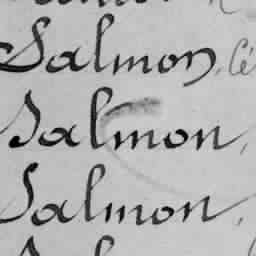 Salmon, Cé
Salmon,
Salmon,